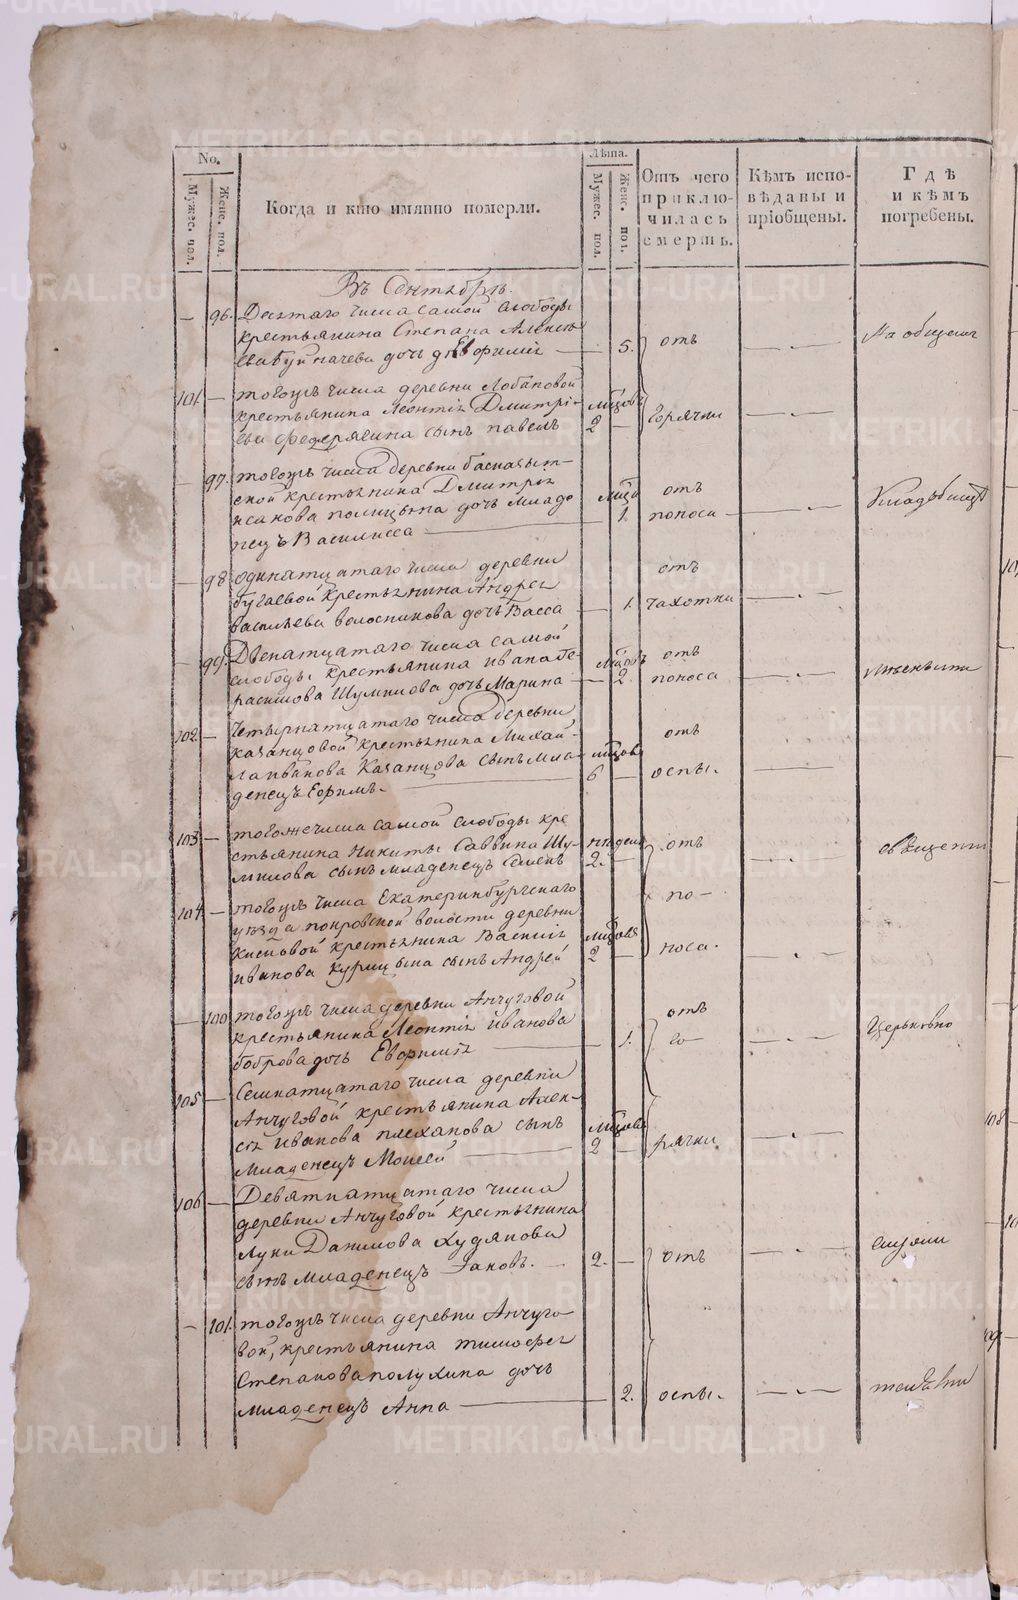 No.
Мужес. пол.
Женс. пол.
Когда и кто имянно померли.
Лѣта.
Мужес. пол.
Женс. пол.
Отъ чего приклю-
чилась
смерть.
Кѣмъ испо-
вѣданы и
пріобщены.
Гдѣ
и кѣмъ
погребены.
Въ Сентябрѣ.
— 96. Десятаго числа самой слободы
крестьянина Степана Алексѣ
ева дочь Евфимія — 5. отъ
На общемъ
101. — тогожъ числа деревни Лобановой
крестьянина Леонтія Дмитрі-
ева сынъ Павелъ мѣцовъ 2 — горячки
— 97. тогожъ числа деревни
ской крестьянина Дмитрія
Исакова дочь младе
нецъ Василисса — мѣца 1. отъ поноса
Кладбищѣ
— 98 одинатцатаго числа деревни
Бугаевой крестьянина Андрея
Васильева Волосникова дочь Васса — 1. отъ чахотки
— 99. Двенатцатаго числа самой
слободы крестьянина Ивана Ге-
расимова Шумилова дочь Марина — мѣцовъ 2. отъ поноса
102 — Четырнатцатаго числа деревни
Казанцовой крестьянина Михай-
ла Иванова Казанцова сынъ мла-
денецъ Ефимъ. — мѣцовъ 6 — отъ оспы.
103 — тогоже числа самой слободы кре
стьянина Никиты Саввина Шу-
милова сынъ младенецъ — недель 2. — отъ
священни
104 — тогожъ числа Екатеринбургскаго
уезда Покровской волости деревни
крестьянина Василія
Иванова Курицына сынъ Андрей мѣцовъ 2 — по-
носа.
— 100 тогожъ числа деревни Анчуговой
крестьянина Леонтія Иванова
Боброва дочь Евфимія — 1. отъ го-
Церковно
105 — Семнатцатаго числа деревни
Анчуговой крестьянина Алек-
сѣя Иванова Плеханова сынъ
младенецъ Моисей — мѣцовъ 2 — рячки.
106 — Девятнатцатаго числа
деревни Анчуговой крестьянина
Луки Данилова Худякова
сынъ младенецъ Іаковъ. — 2. — отъ
— 101. тогожъ числа деревни Анчуго-
вой, крестьянина Тимофея
Степанова Полухина дочь
младенецъ Анна — 2. оспы.
METRIKI.GASO-URAL.RU